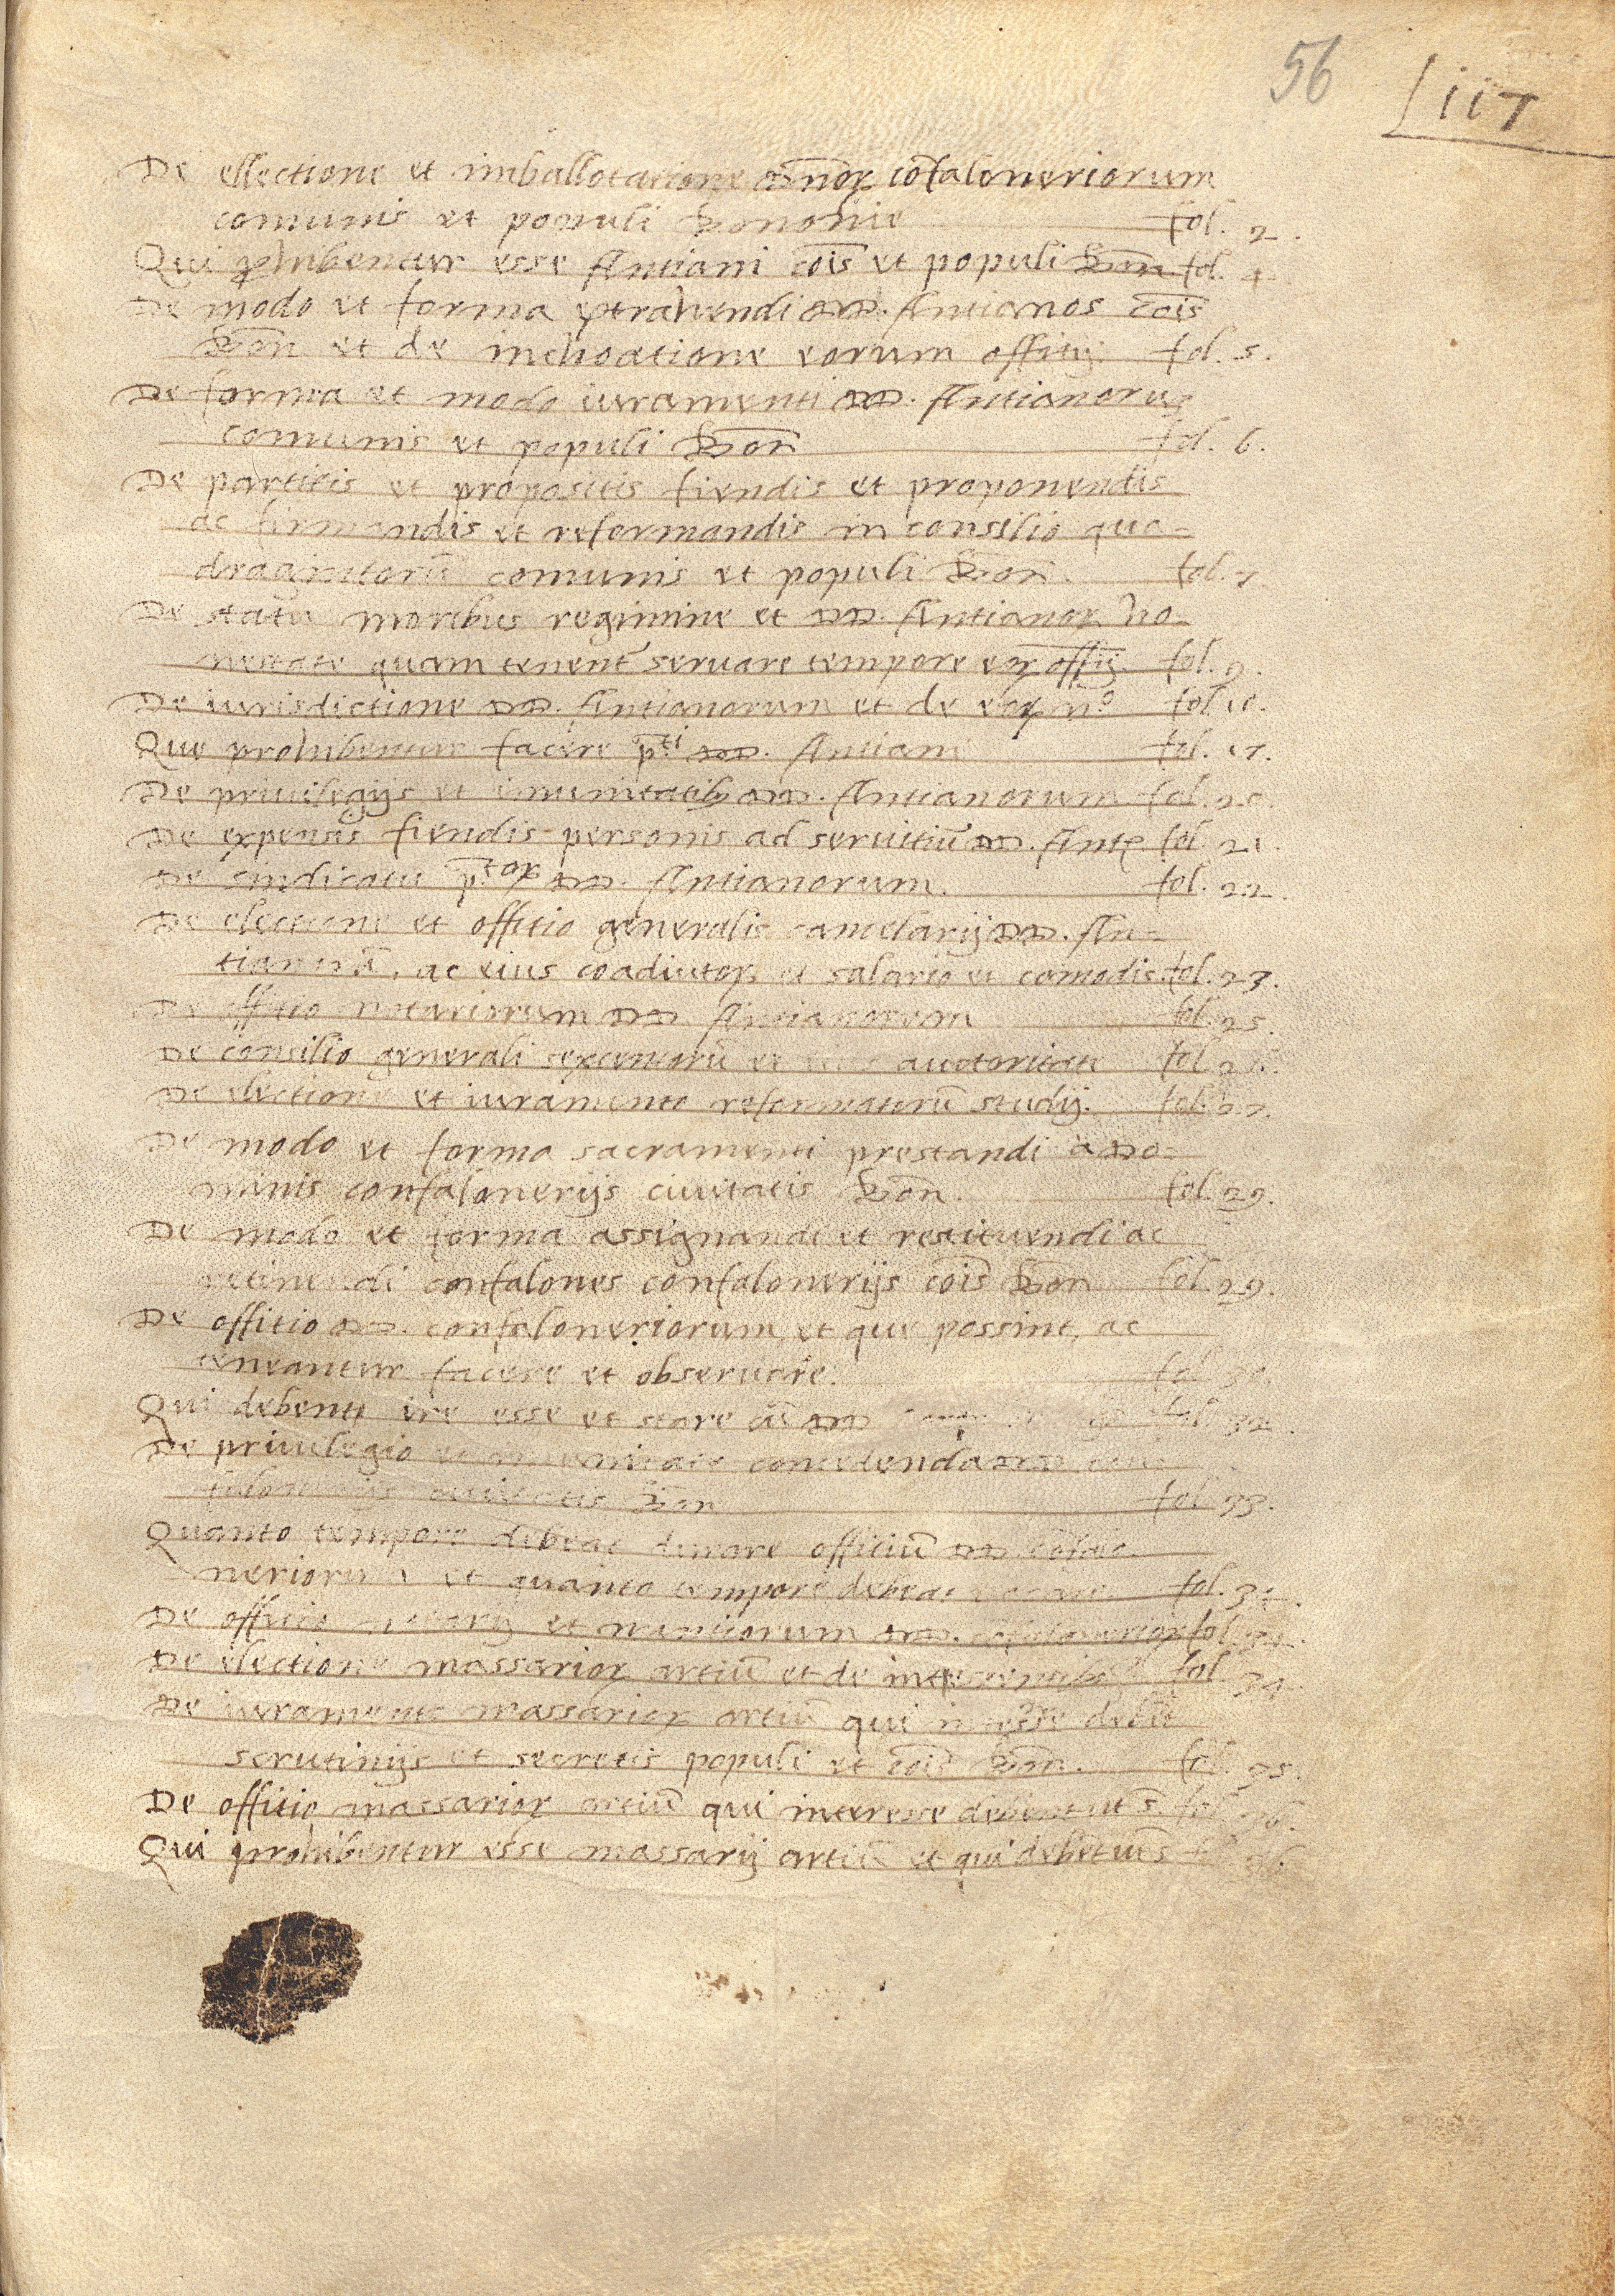 56 Liii
De ellectione et imballotatione dñoꝝ cōfaloneriorum
comunis et populi Bononie fol. 2.
Qui ꝓhibentur esse Antiani cōis et populi Bon fol. 4
De modo et forma extrahendi DD. Antianos cōis
Bon et de inchoatione eorum offitij. fol. 5.
De forma et modo iuramenti DD. Antianorum
comunis et populi Bon fol. 6.
De partitis et propositis fiendis et proponendis
ac firmandis et reformandis in consilio qua=
dragintorū comunis et populi Bon. fol. 7.
De statu moribus regimine et DD. Antianoꝝ ho=
nestate quam tenent̄ servare tempore eoꝝ offij. fol. 9.
De iurisdictione DD. Antianorum et de eoꝝ nº fol 10.
Que prohibentur facere p.ti DD. Antiani fol. 17.
De privilegijs et imunitatibꝫ DD. Antianorum fol. 20.
De expensis fiendis personis ad servitiū DD. Antꝝ fol 21.
De sindicatu p.toꝝ DD. Antianorum. fol. 22.
De electione et offitio generalis cancelarij DD. An=
tianorū, ac eius coadiutoꝝ et salario et comodis. fol. 23.
De offitio notariorum DD Antianorum fol. 25.
De consilio generali sexcentorū et eius auctoritate fol. 26.
De electione et iuramento reformatorū studij. fol. 27.
De modo et forma sacramenti prestandi a Do=
minis confalonerijs civitatis Bon. fol. 29.
De modo et forma assignandi et restituendi ac
retinendi confalones confalonerijs cōis Bon fol 29.
De offitio DD. confaloneriorum, et que possint, ac
teneantur facere et observare. fol 30.
Qui debent ire esse et stare cū DD fol 32.
De privilegio et imunitate concedenda DD con
falonerijs civitatis Bon fol 33.
Quanto tempore debeat durare offitiū DD cōfalo=
neriorum et quanto tempore debeat vacare. fol. 34.
De offitio notarij et nuntiorum DD. cōfaloneroꝝ fol. 34.
De electione massarioꝝ artiū et de interessentibꝫ fol. 34.
De iuramento massarioꝝ artiū qui interesse debēt
scrutinijs et secretis populi et cōis Bon. fol. 35.
De offitio massarioꝝ artiū qui interesse debent ut s. fol 36.
Qui prohibentur esse massarij artiū et qui debēt ut s. fol 36.